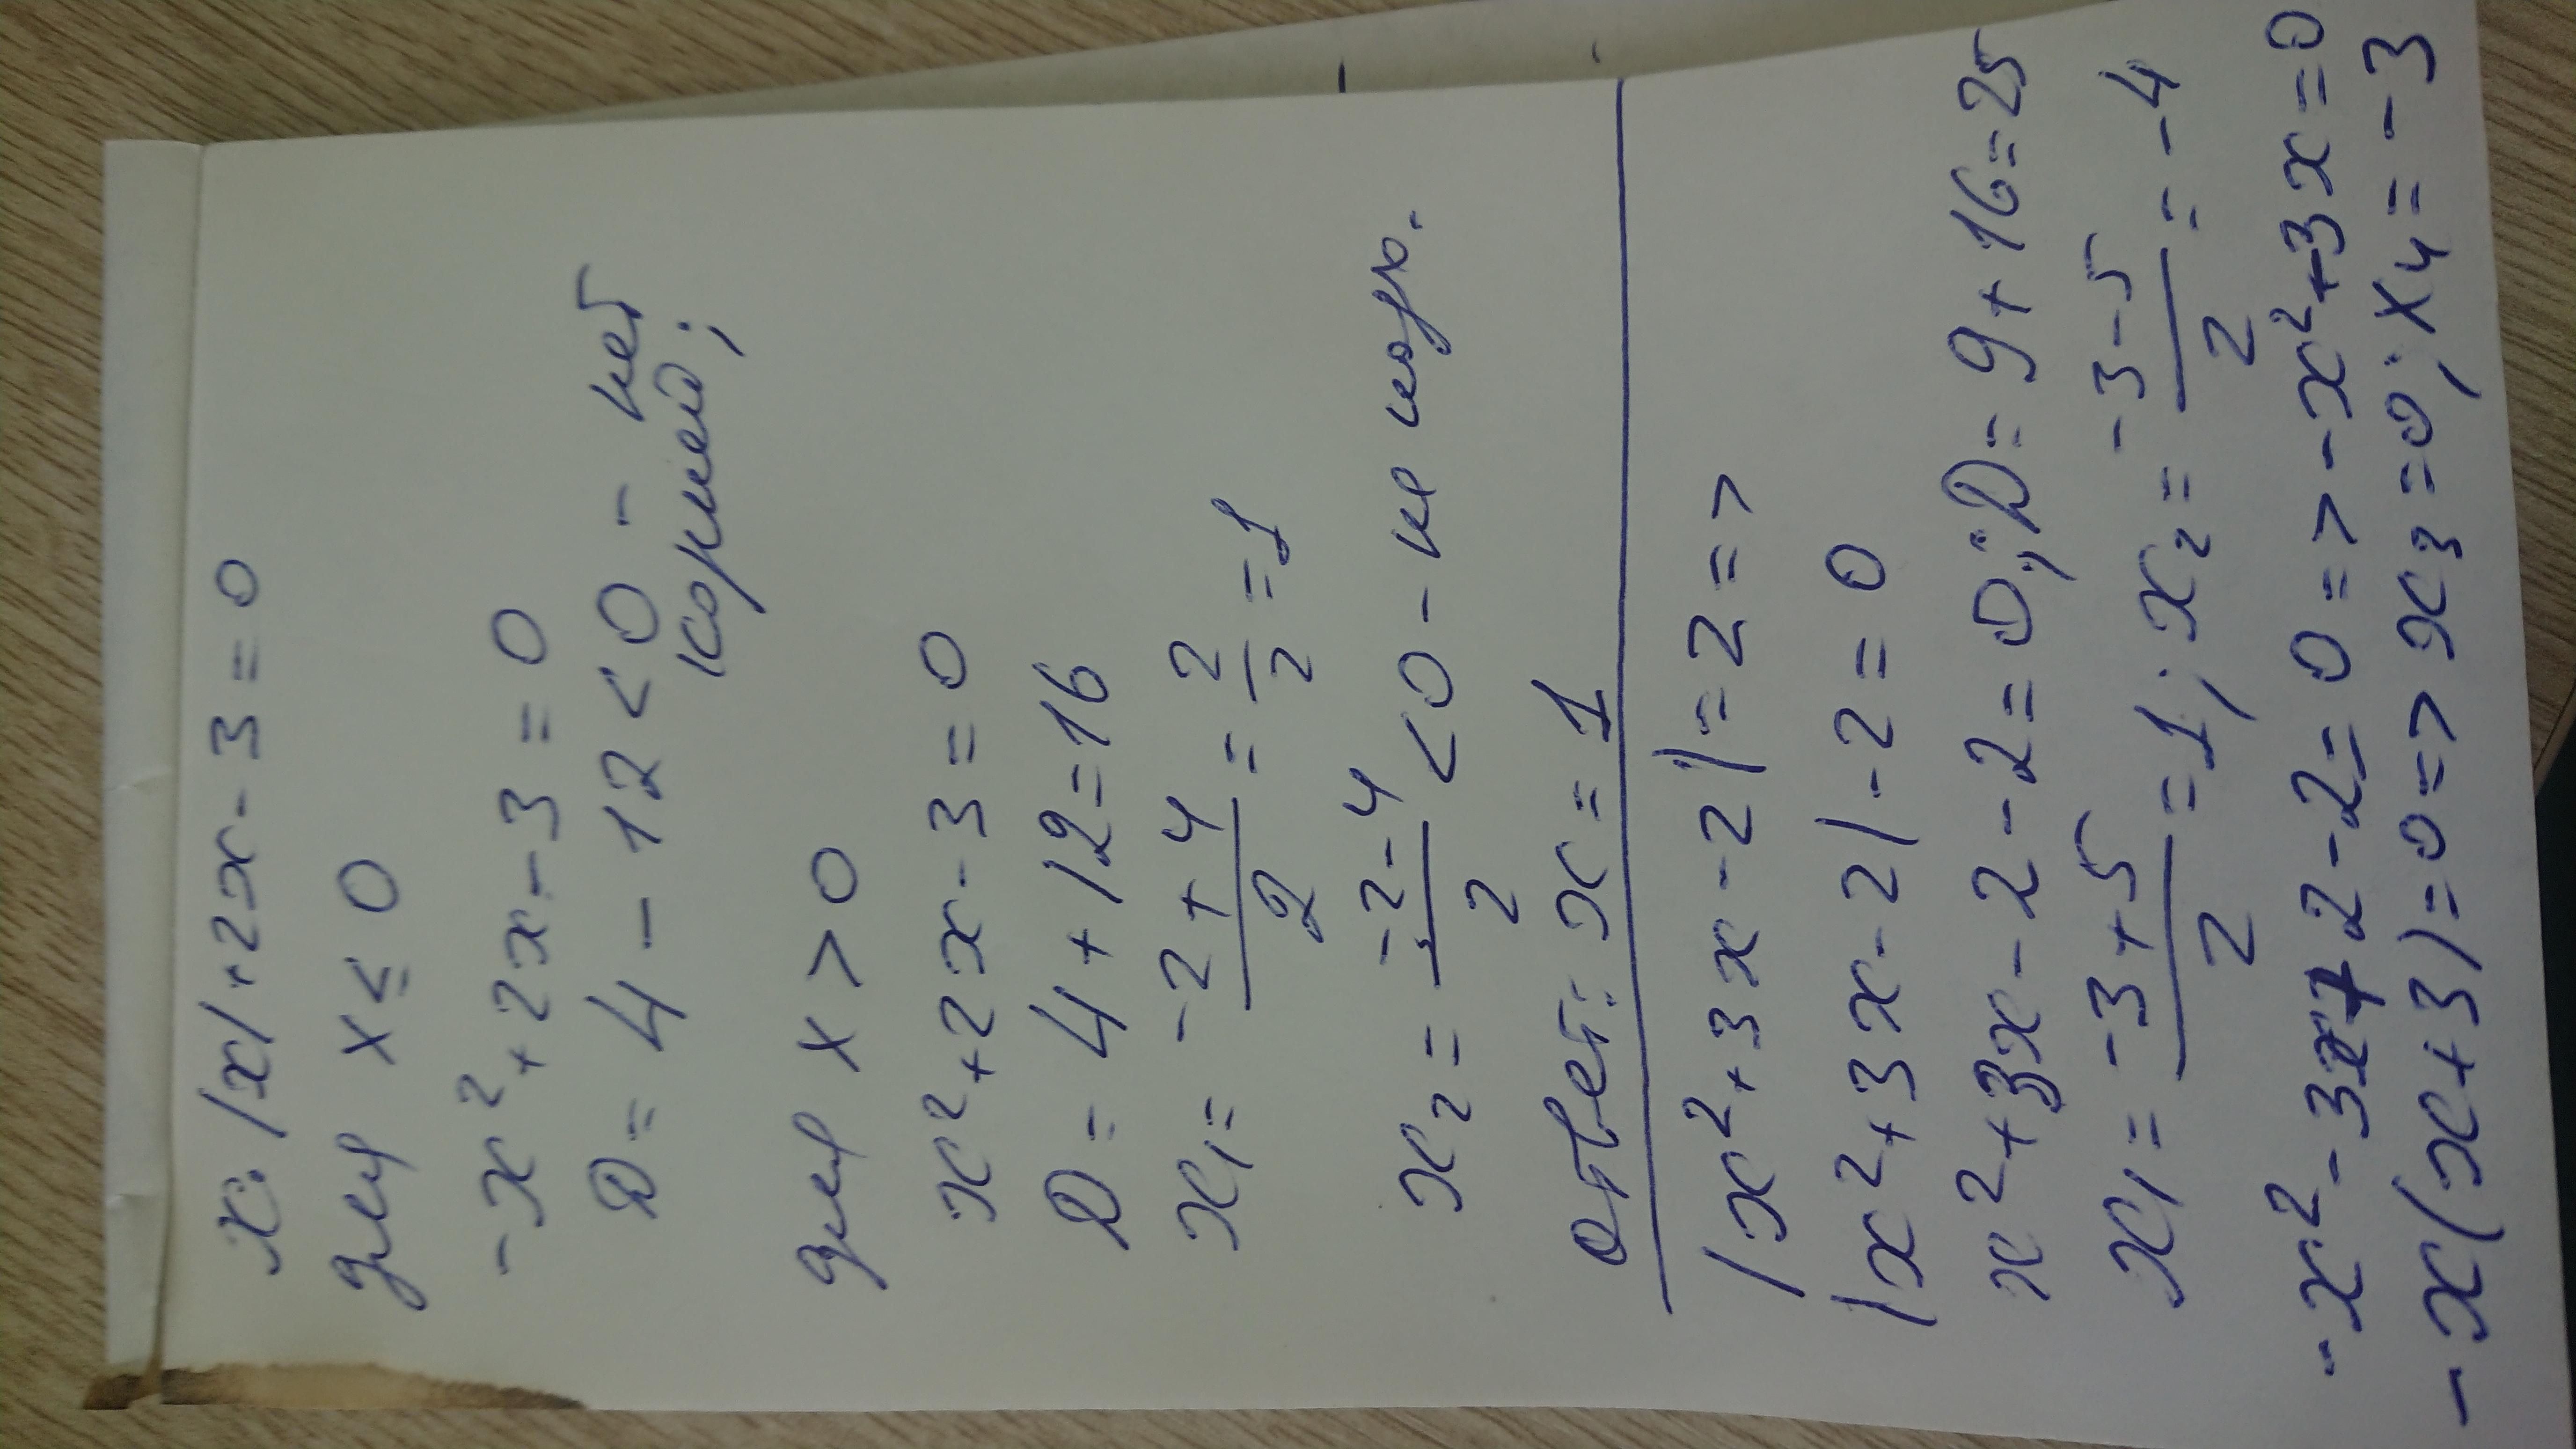 x·|x|+2x-3=0
для x ≤ 0
-x²+2x-3=0
D= 4-12<0 - нет
корней;
для x>0
x²+2x-3=0
D= 4+12=16
x₁= (-2+4)/2 = 2/2 =1
x₂= (-2-4)/2 <0 - не корн.
ответ: x=1
|x²+3x-2|=2 =>
|x²+3x-2|-2=0
x²+3x-2-2=0; D=9+16=25
x₁= (-3+5)/2 =1; x₂= (-3-5)/2 = -4
-x²-3x+2-2=0 => -x²+3x=0
-x(x+3)=0 => x₃=0; x₄=-3